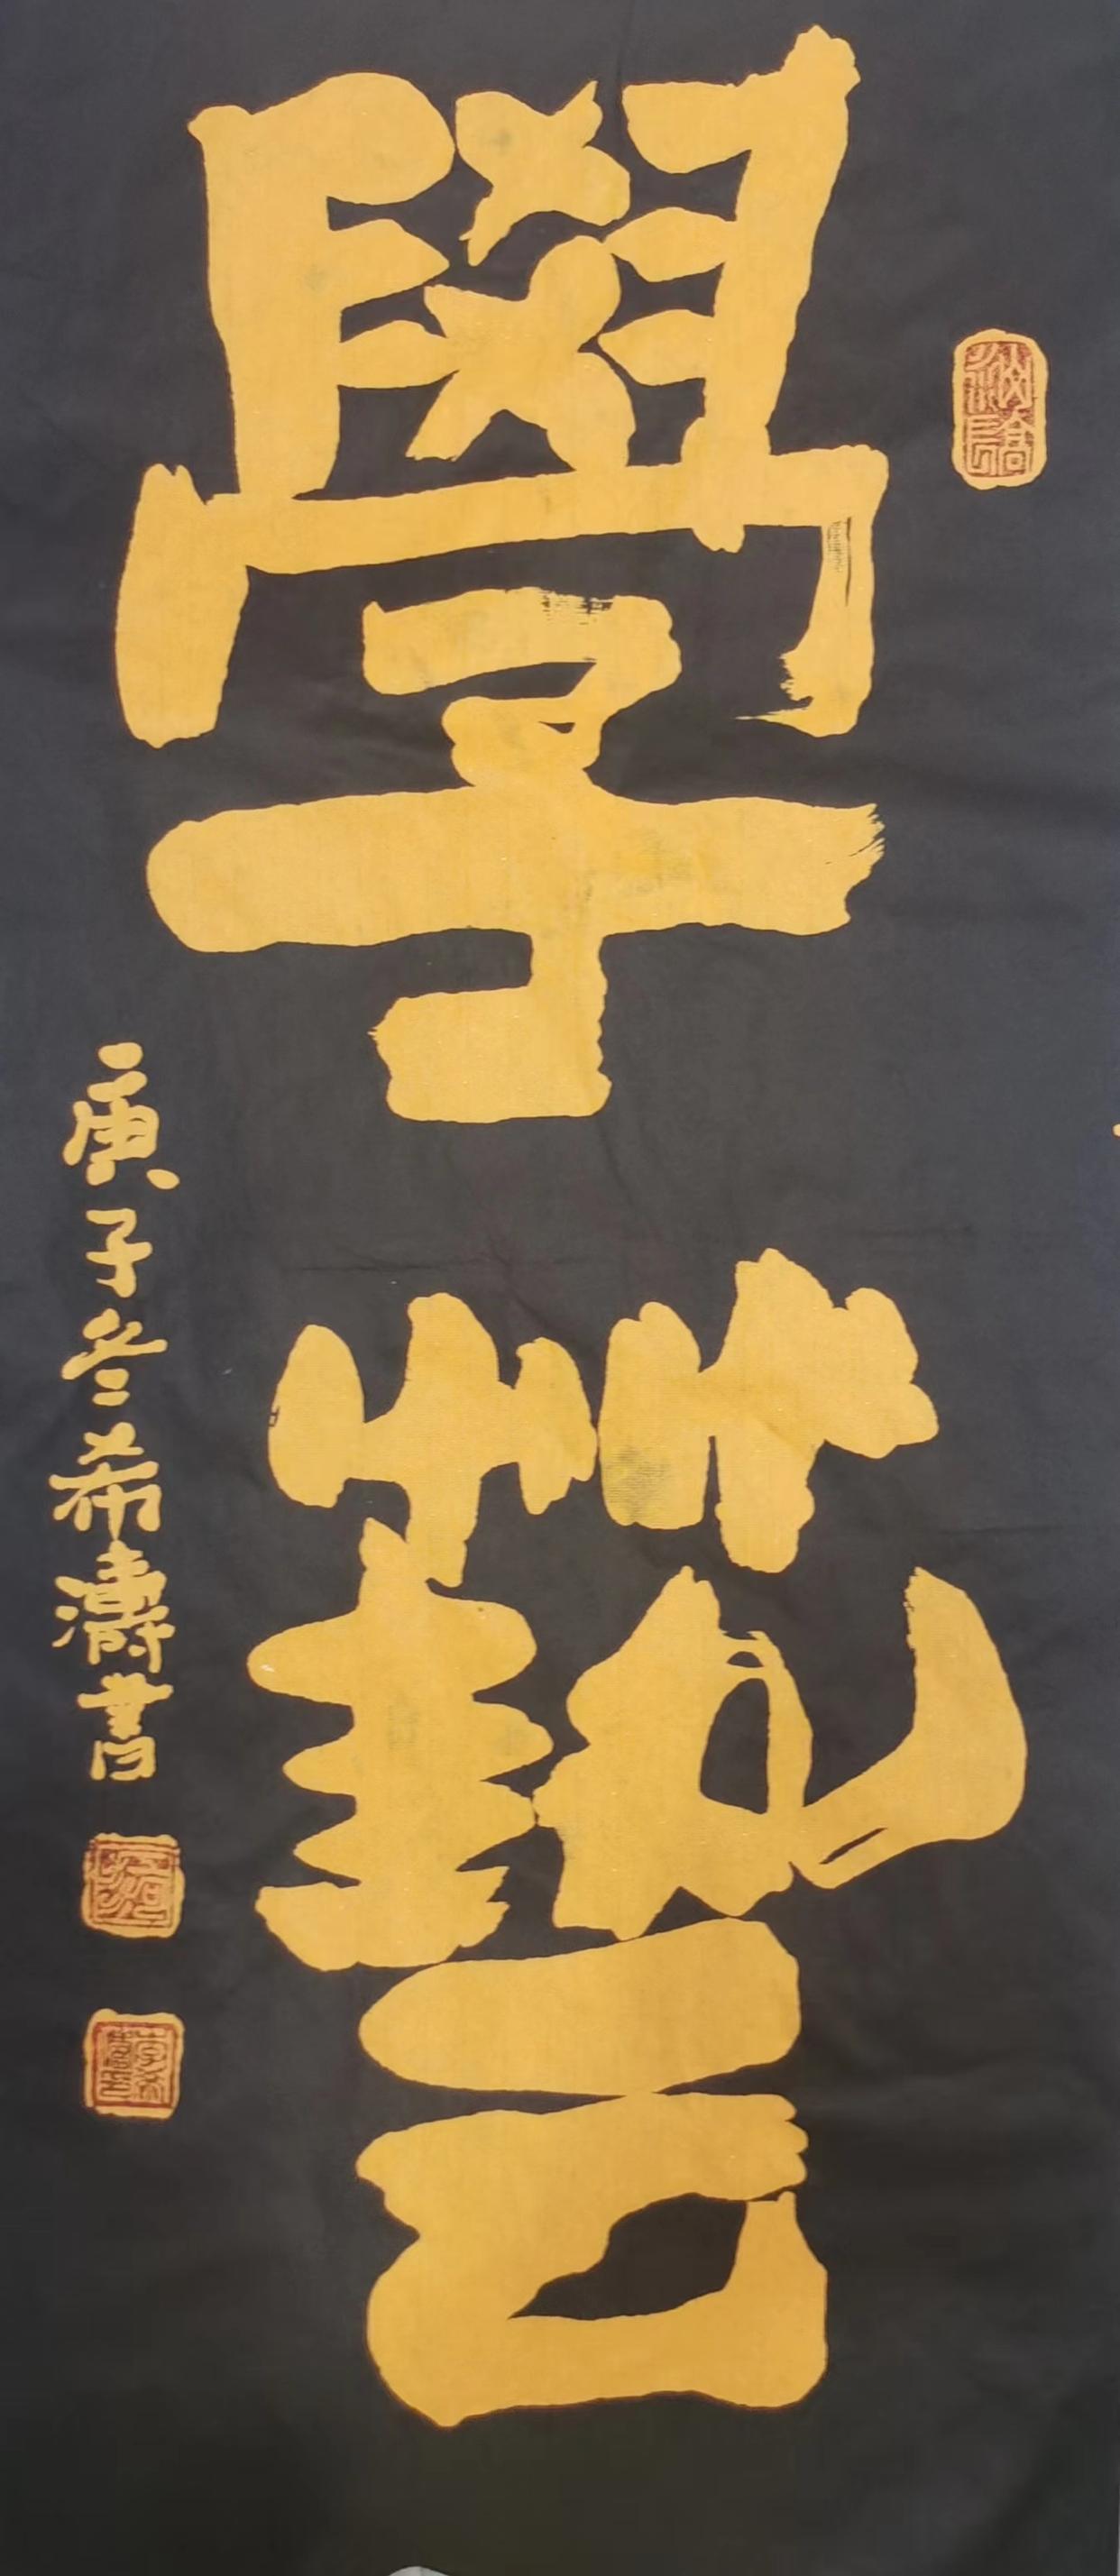 學藝
庚子冬希濤書